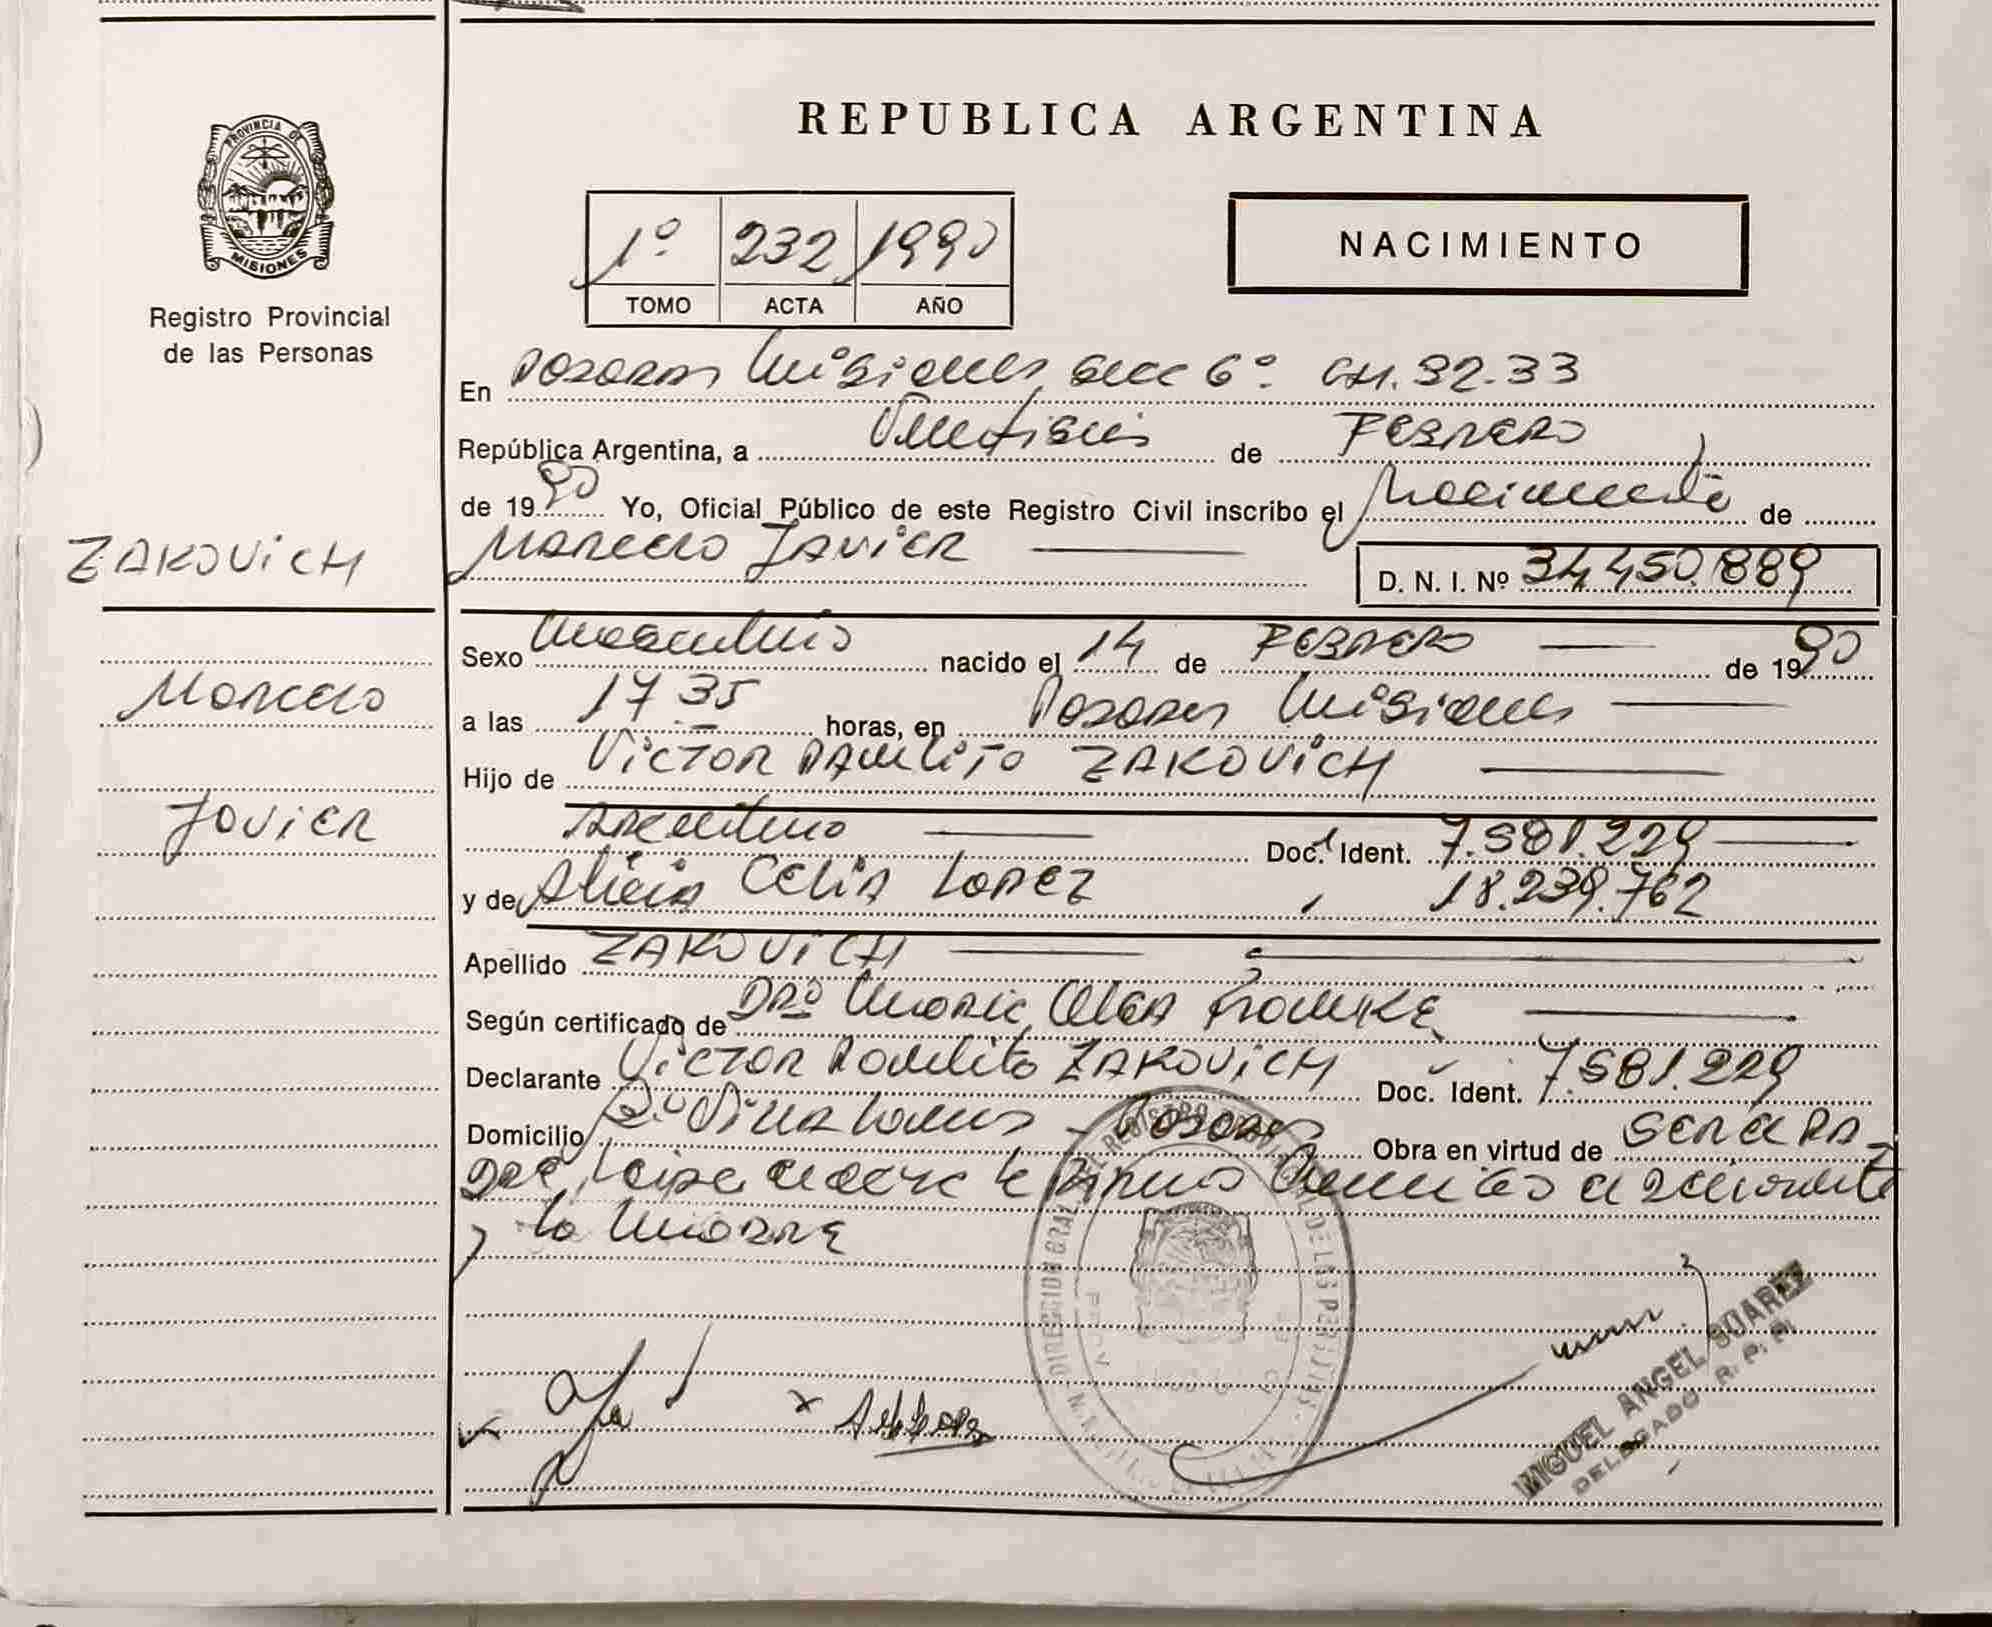 REPUBLICA ARGENTINA
PROVINCIA DE
MISIONES
Registro Provincial
de las Personas
1º 232 1990
TOMO ACTA AÑO
NACIMIENTO
En Posadas Misiones, secc 6º. CH. 32.33
República Argentina, a Veintiseis de Febrero
de 1990 Yo, Oficial Público de este Registro Civil inscribo el Nacimiento de
ZAKOVICH
Marcelo Javier D. N. I. Nº 34.450.889
Sexo Masculino nacido el 14 de Febrero de 1990
Marcelo
a las 17 35 horas, en Posadas Misiones
Hijo de Victor ZAKOVICH
Javier
Argentino Doc. Ident. 7.581.229
y de Alicia Celia Lopez 18.239.762
Apellido ZAKOVICH
Según certificado de Dra Olga
Declarante Victor ZAKOVICH Doc. Ident. 7.581.229
Domicilio Posadas Obra en virtud de ser el Pa-
dre, firma el declarante
y la Madre
MIGUEL ANGEL SUAREZ
DELEGADO R. P. P.